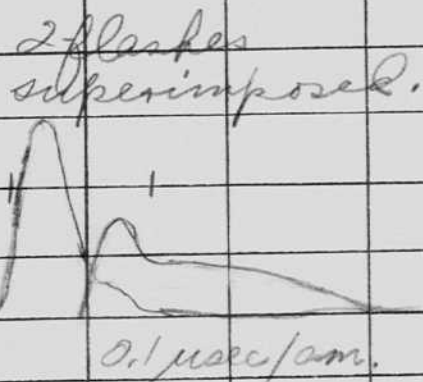 2 flashes
superimposed.
0.1 µsec/cm.